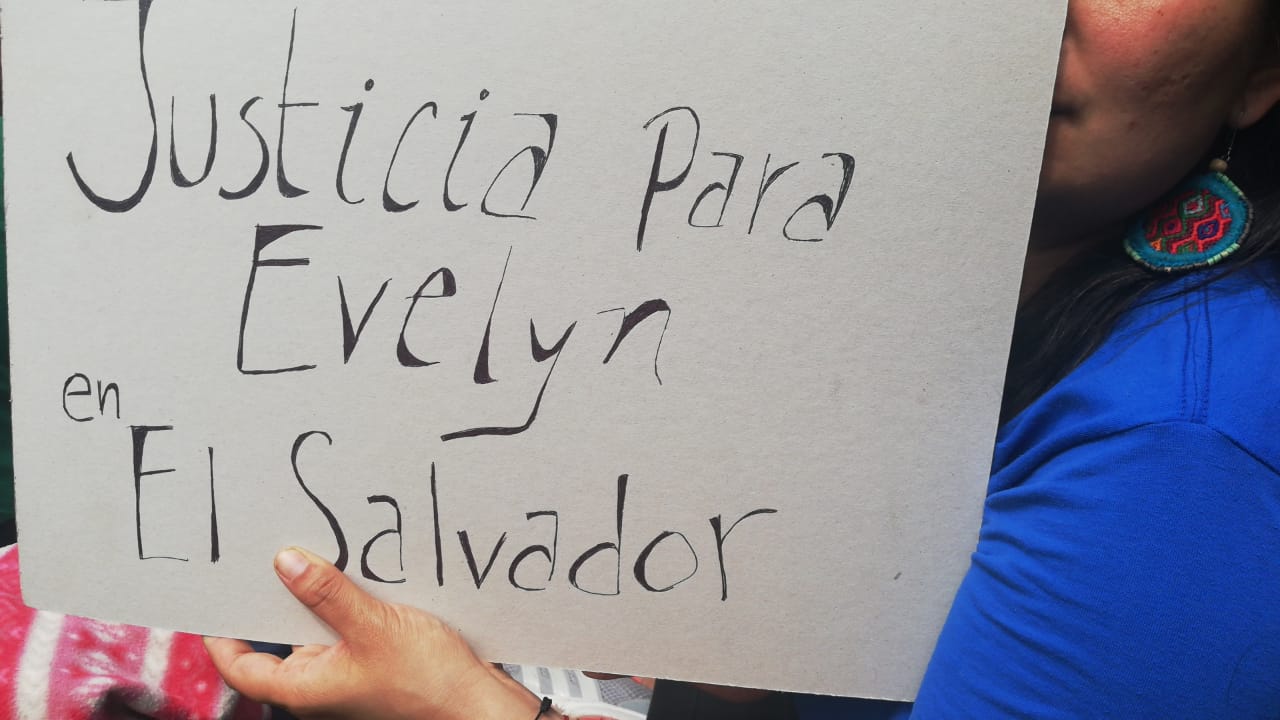 Justicia Para
Evelyn
en
El Salvador